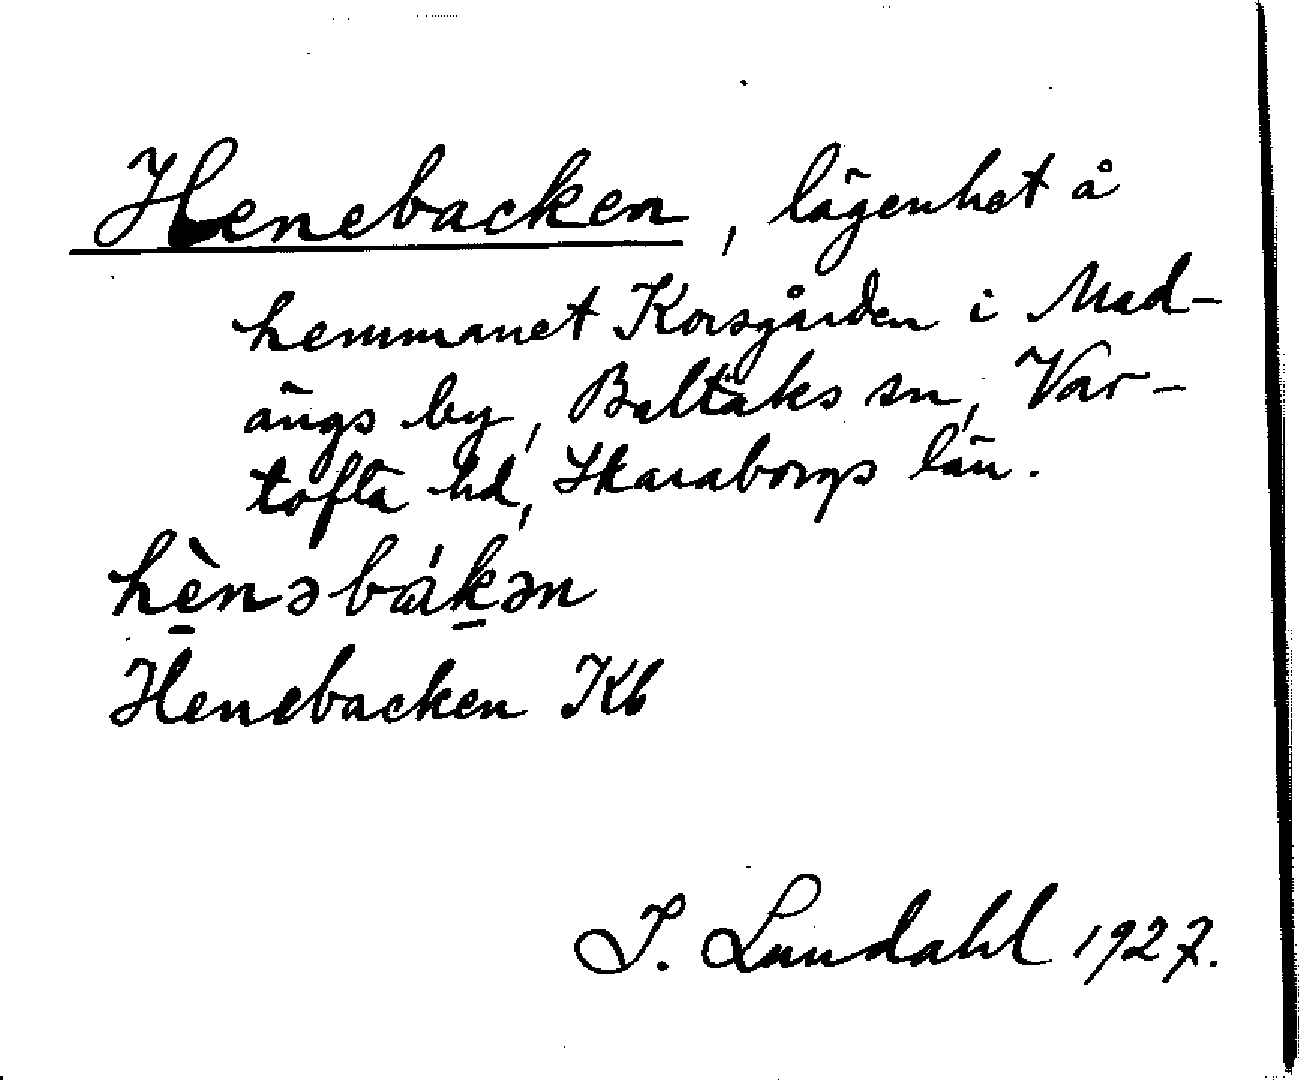 Henebacken, lägenhet å
hemmanet Korsgården i Mad-
ängs by, Baltaks sn, Var-
tofta hd, Skaraborgs län.
hènəbákən
Henebacken Kb
I. Lundahl 1927.